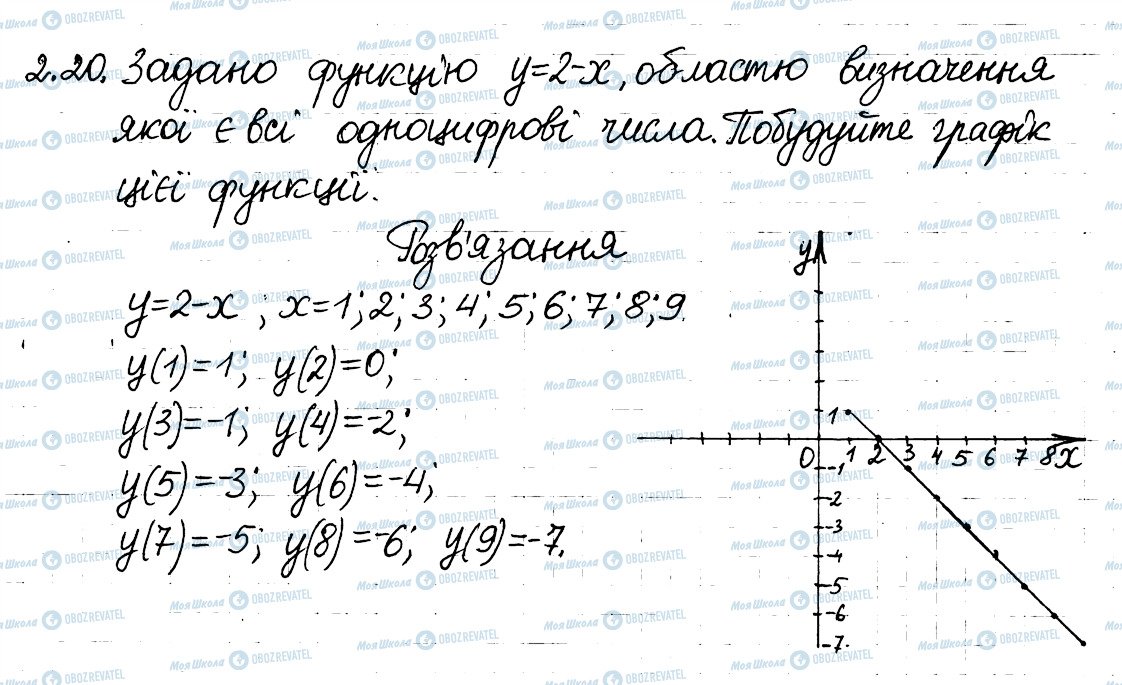 2.20. Задано функцію y=2-x, областю визначення
якої є всі одноцифрові числа. Побудуйте графік
цієї функції.
Розв'язання
y=2-x ; x=1; 2; 3; 4; 5; 6; 7; 8; 9.
y(1)=1; y(2)=0;
y(3)=-1; y(4)=-2;
y(5)=-3; y(6)=-4;
y(7)=-5; y(8)=-6; y(9)=-7.
y
1
0 1 2 3 4 5 6 7 8 x
-1
-2
-3
-4
-5
-6
-7